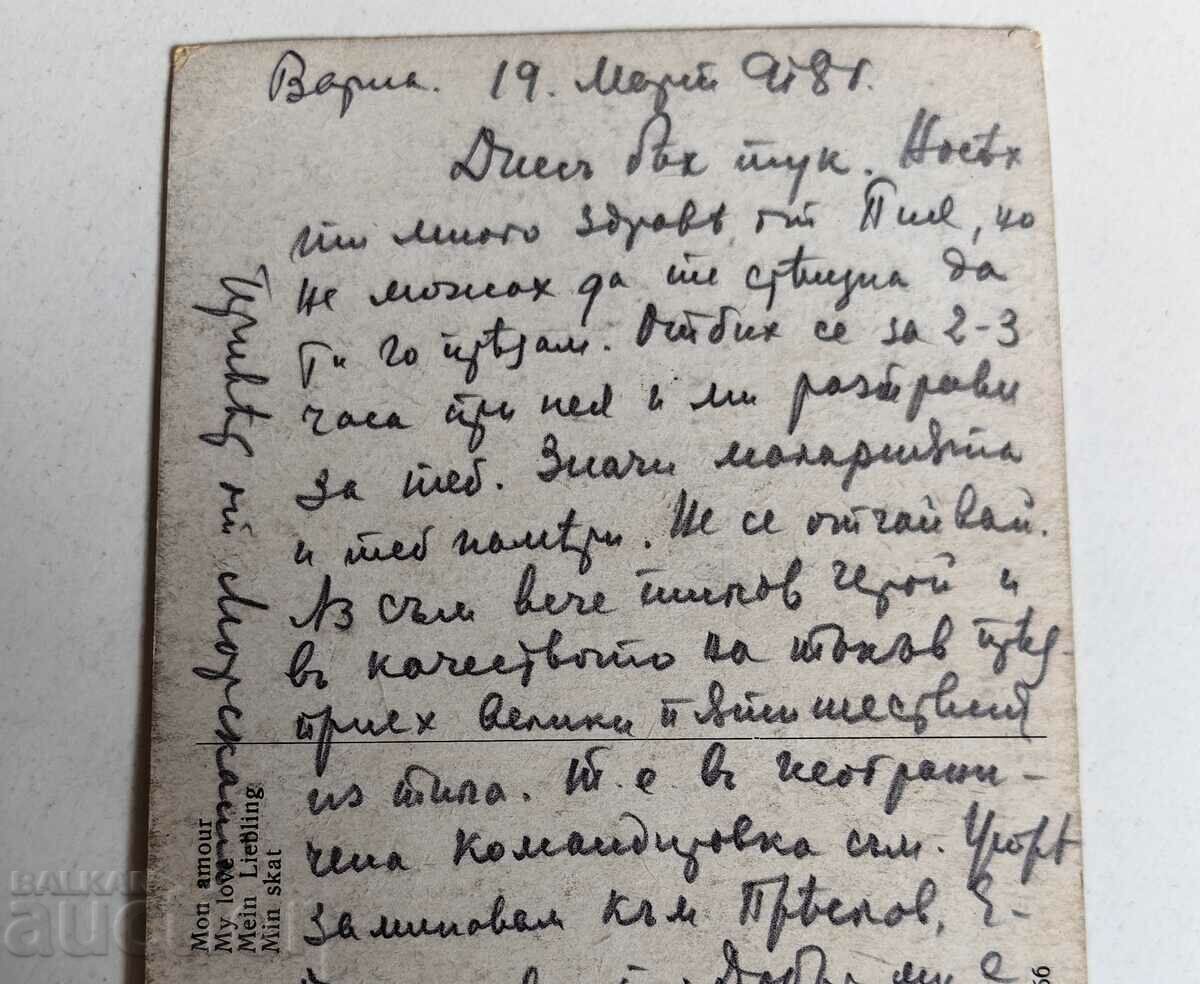 Варна. 19. Март 918 г.
Днесъ бѣх тук. Носѣх
ти много здравѣ от Пия, но
не можах да те срѣщна да
Ти го прѣдам. Отбих се за 2-3
часа при нея и ми разправи
за теб. Значи маларията
и теб намѣри. Не се отчайвай.
Аз съм вече тилов герой и
въ качеството на такъв прѣд-
приех велики пѫтишествия
из тила. Т. е въ неограни-
чена командировка съм. Утрѣ
заминавам към Прѣслов,
Добрѣ ми е
Привѣт от
Mon amour
My love
Mein Liebling
Min skat
BALKAN
auc